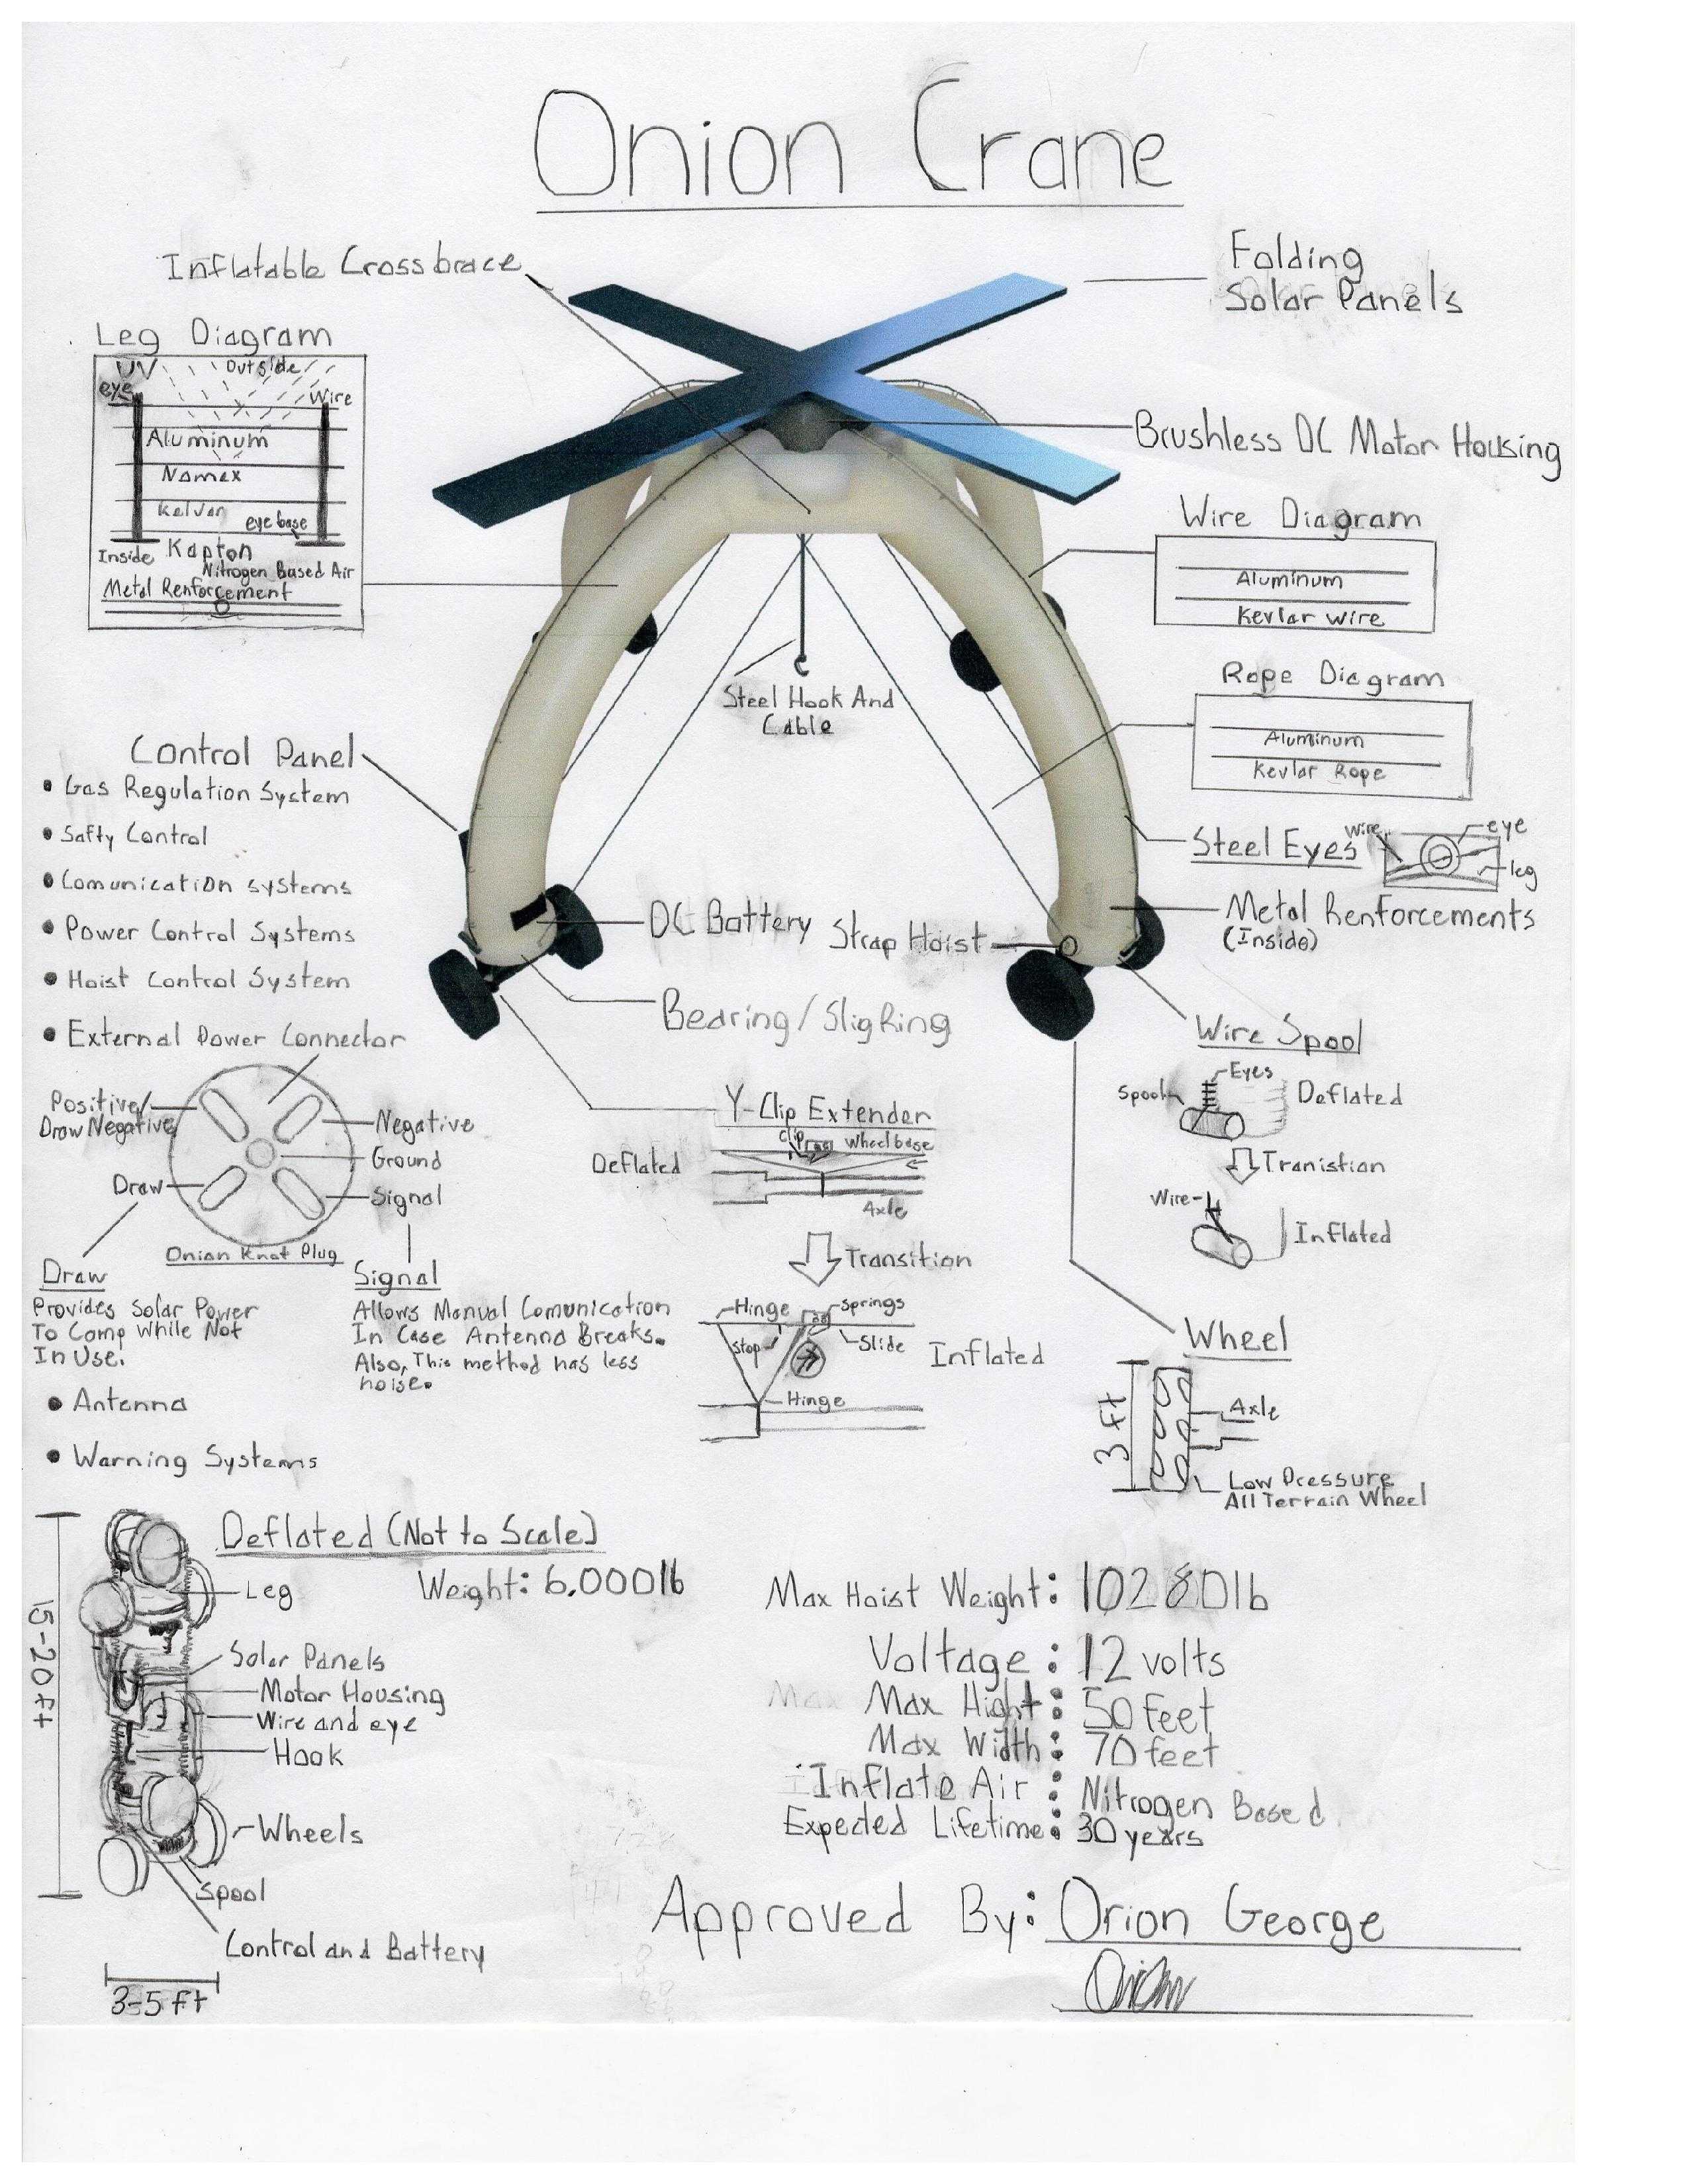 Onion Crane
Inflatable Crossbrace
Folding
Solar Panels
Leg Diagram
UV
Outside
eye
Wire
Aluminum
Nomex
Kelvar
eye base
Inside
Kapton
Nitrogen Based Air
Metal Renforcement
Brushless DC Motor Housing
Wire Diagram
Aluminum
Kevlar Wire
Rope Diagram
Aluminum
Kevlar Rope
Steel Hook And
Cable
Control Panel
• Gas Regulation System
• Safty Control
• Comunication systems
• Power Control Systems
• Hoist Control System
• External Power Connector
Steel Eyes
Wire
eye
leg
Metal Renforcements
(Inside)
DC Battery
Strap Hoist
Bearing/SligRing
Wire Spool
Spool
Eyes
Deflated
Tranistion
Wire
Inflated
Positive/
Draw Negative
Negative
Ground
Draw
Signal
Onion Knot Plug
Draw
Provides Solar Power
To Comp While Not
In Use.
Signal
Allows Manual Comunication
In Case Antenna Breaks.
Also, This method has less
noise.
• Antenna
• Warning Systems
Y-Clip Extender
Clip
Wheel base
Deflated
Axle
Transition
Hinge
Springs
Stop
Slide
Inflated
Hinge
Wheel
3 ft
Axle
Low Pressure
All Terrain Wheel
Deflated (Not to Scale)
Weight: 6,000lb
15-20ft
Leg
Solar Panels
Motor Housing
Wire and eye
Hook
Wheels
Spool
Control and Battery
3-5 ft
Max Hoist Weight: 10280lb
Voltage: 12 volts
Max Hight: 50 feet
Max Width: 70 feet
Inflate Air: Nitrogen Based
Expected Lifetime: 30 years
Approved By: Orion George
Orion